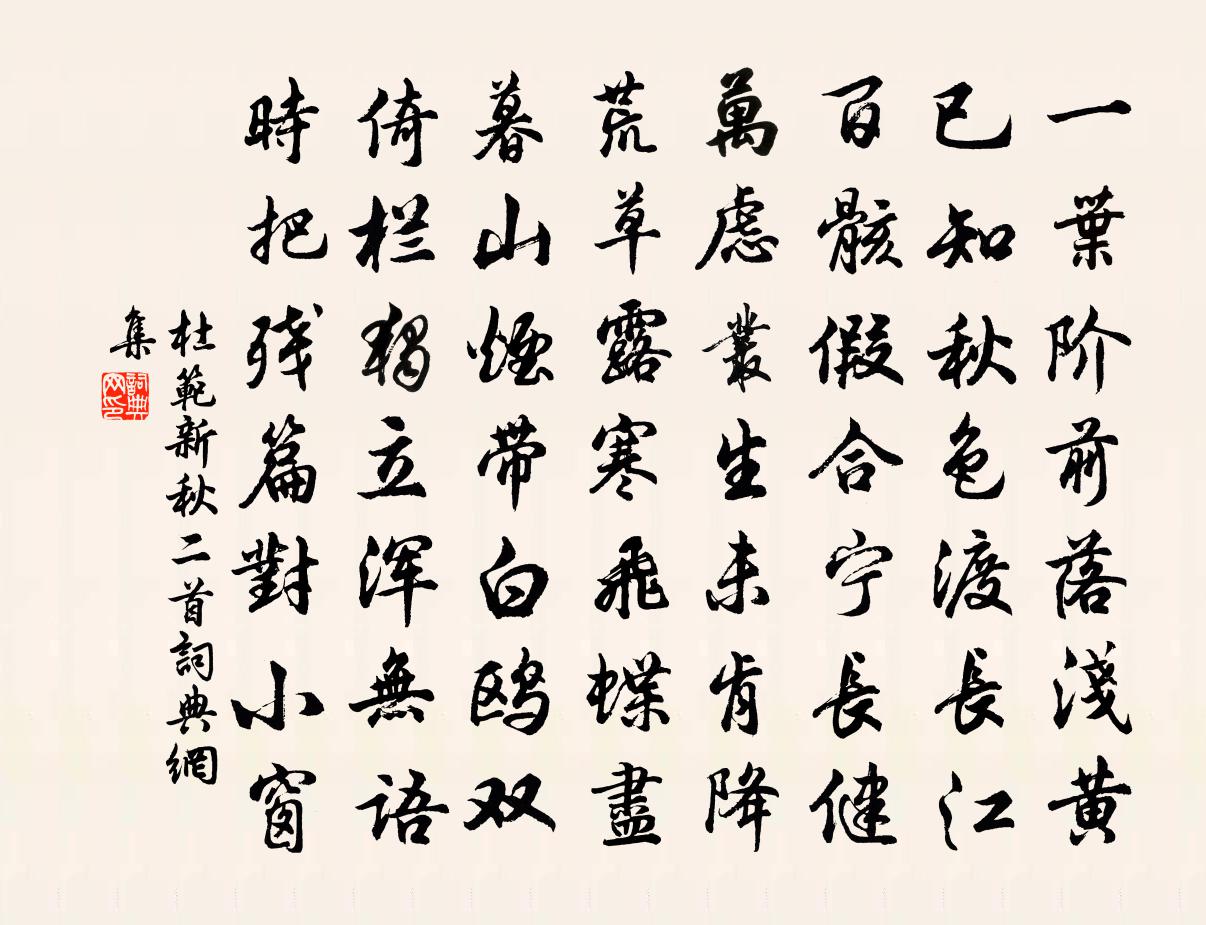 一葉阶前落淺黄
已知秋色渡長江
百骸假合宁長健
萬慮叢生未肯降
荒草露寒飛蝶盡
暮山煙带白鸥双
倚栏獨立浑無語
時把残篇對小窗
杜範新秋二首詞典網
集
詞典
网印